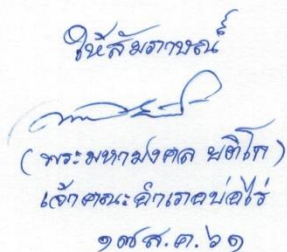 ให้สัมภาษณ์
(พระมหามงคล ยติโก)
เจ้าคณะอำเภอบ่อไร่
๑๗ ส.ค. ๖๑